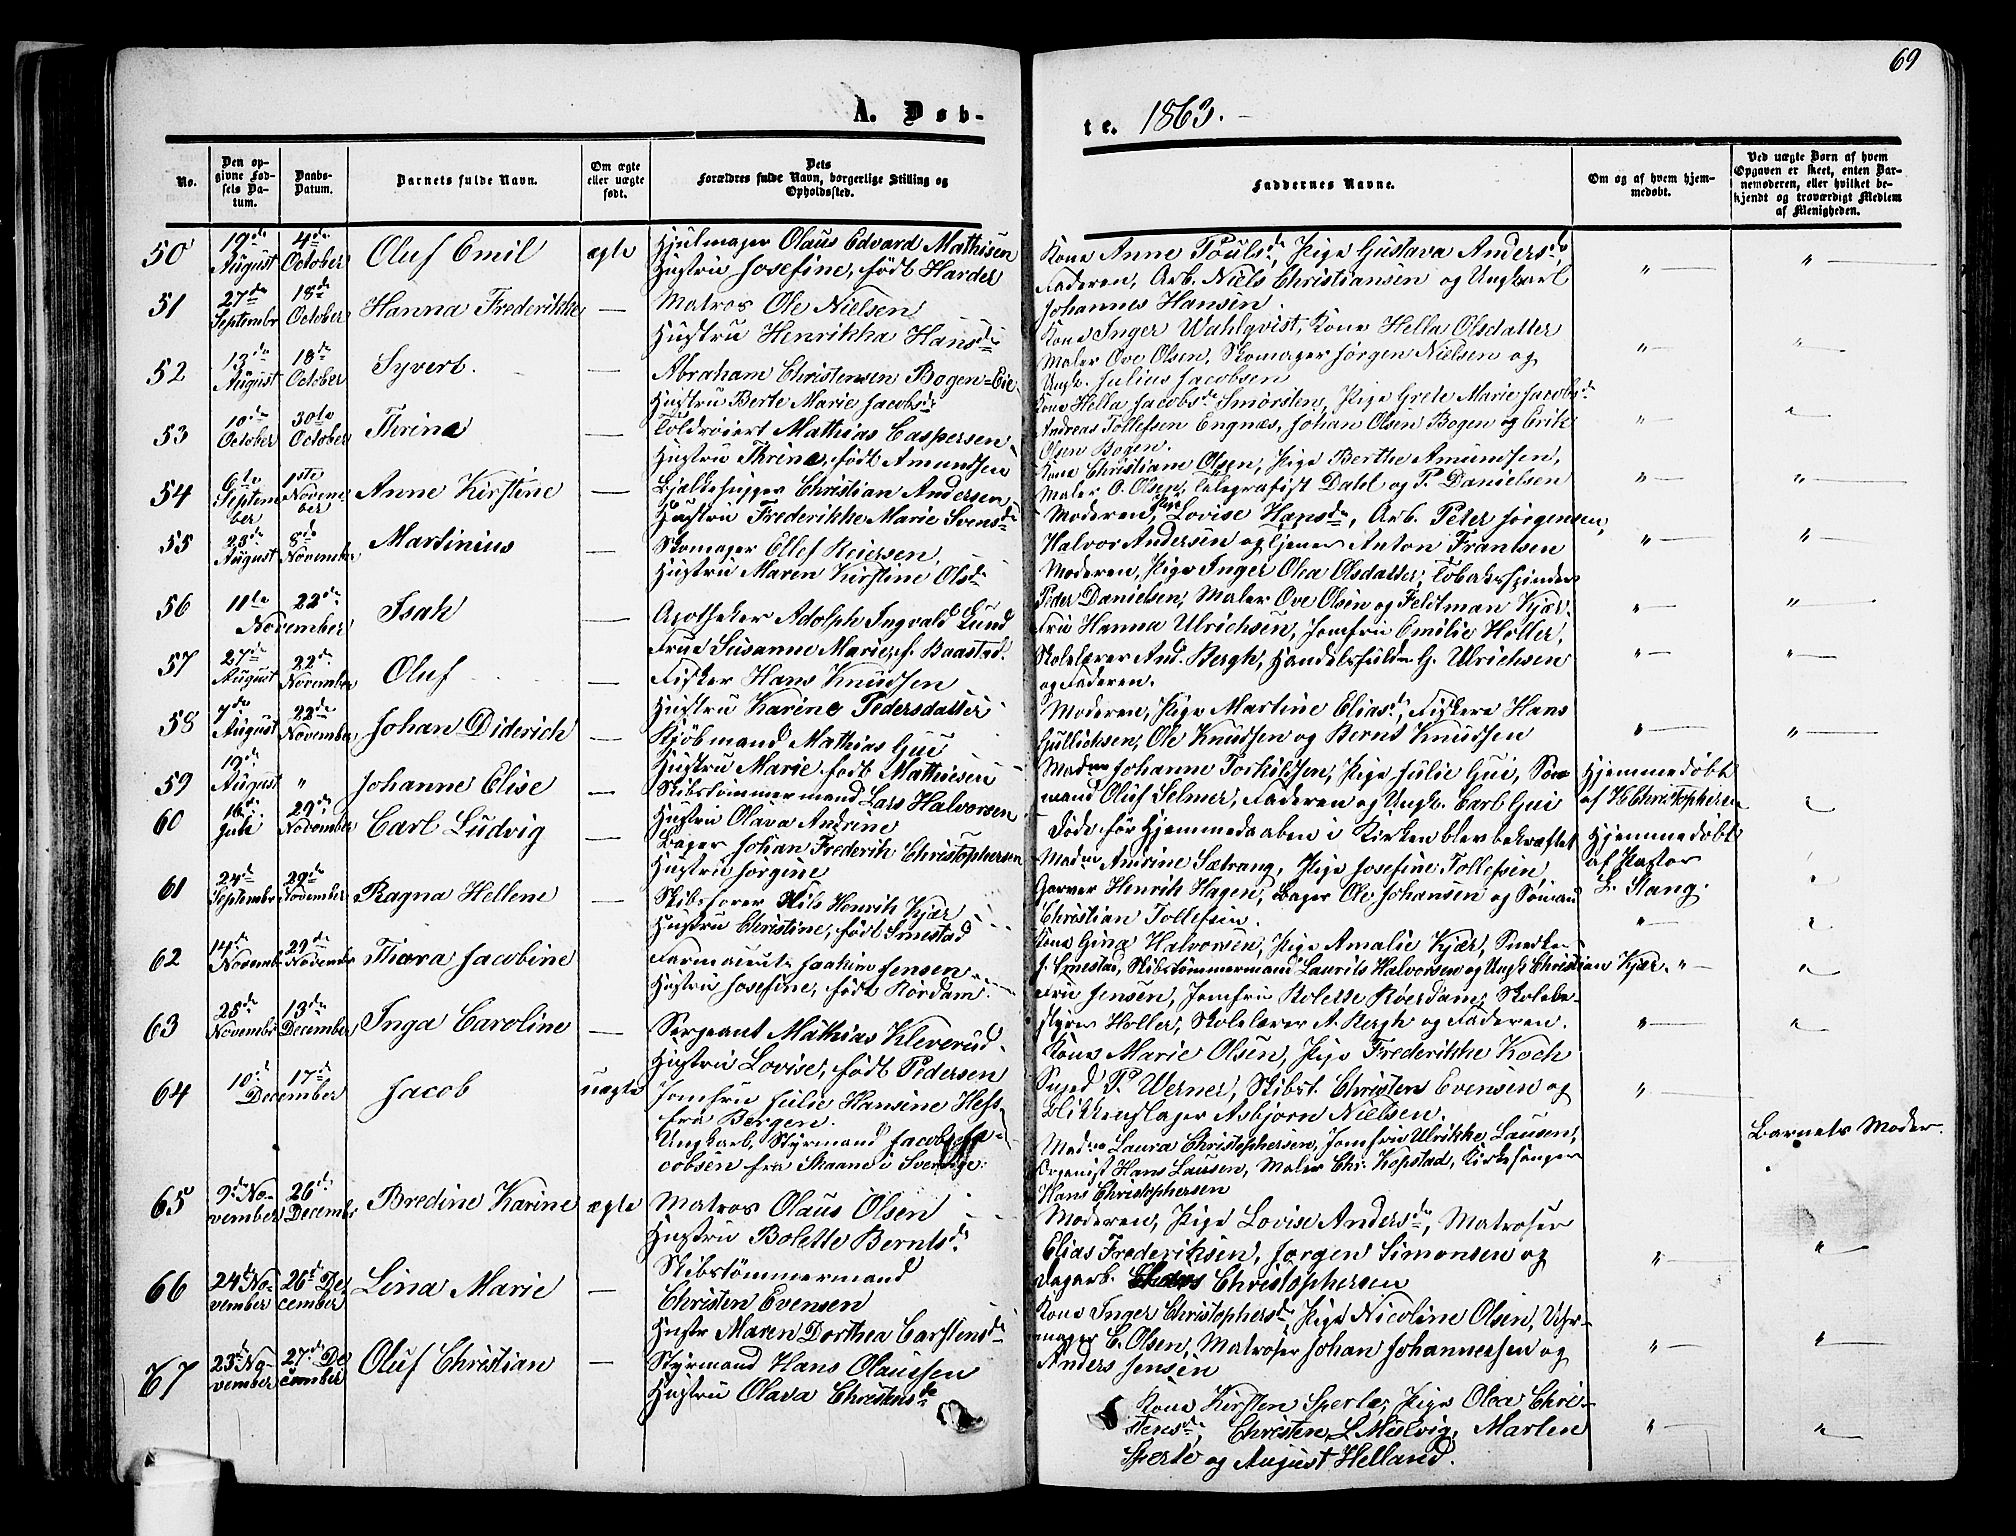 69
A. Døb-
te. 1863.
No.
Den op-
givne Fød-
sels Da-
tum.
Daabs-
Datum.
Barnets fulde Navn.
Om ægte
eller uægte
født.
Dets
Forældres fulde Navn, borgerlige Stilling og
Opholdssted.
Faddernes Navne.
Om og af hvem hjem-
medøbt.
Ved uægte Børn af hvem
Opgaven er skeet, enten Bar-
nemoderen, eller hvilket be-
kjendt og troværdigt Medlem
af Menigheden.
50 19de August 4de October Oluf Emil ægte
Hjulmager Olaus Edvard Mathisen
Hustru Josefine, født Harder
Kone Anne Poulsd., Pige Gustava Andersd.
Faderen, Arb. Niels Christiansen og Ungkarl
Johannes Hansen.
51 27de Septembr 18de October Hanna Frederikke —
Matros Ole Nielsen
Hustru Henrikka Hansd.
Kone Inger Wahlqvist, Kone Hella Olsdatter
Maler Ove Olsen, Skomager Jørgen Nielsen og
Ungk. Julius Jacobsen
52 13de August 18de October Syvert. —
Abraham Christensen Bogen=Eie
Hustru Berte Marie Jacobsd.
Kone Hella Jacobsd. Smørsten, Pige Grete Marie Jacobsd.
Andreas Tollefsen Engnæs, Johan Olsen Bogen og Erik
Olsen Bogen.
53 10de October 30te October Thrine —
Toldroiert Mathias Caspersen
Hustru Thrine, født Amundsen
Kone Christiane Olsen, Pige Berthe Amundsen,
Maler O. Olsen, Telegrafist Dahl og P. Danielsen
54 6te Septem ber 1ste Novem ber Anne Kirstine —
Bjælkehugger Christian Andersen
Hustru Frederikke Marie Svensd.
Moderen, Pige Lovise Hansd., Arb. Peter Jørgensen,
Halvor Andersen og tjener Anton Frantsen
55 23de August 8de November Martinius —
Skomager Ellef Reiersen,
Hustru Maren Kirstine Olsd.
Moderen, Pige Inger Olea Olsdatter, Tobaksspinder
Peder Danielsen, Maler Ove Olsen og Feldtman Kjær.
56 11te 22de November Isak —
Apotheker Adolph Ingvald Lund
Frue Susanne Marie, f. Baastad.
Fru Hanna Ulrichsen, Jomfru Emilie Holler,
Skolelærer And. Bergh, Handelsfuldm. G. Ulrichsen
og Faderen.
57 27de August 22de November Oluf —
Fisker Hans Knudsen
Hustru Karine Pedersdatter
Moderen, Pige Martine Eliasd., Fiskere Hans
Gullichsen, Ole Knudsen og Bernt Knudsen
58 7de August 22de November Johan Diderich —
Kjøbmand Mathias Gui
Hustru Marie født Mathisen
Madme Johanne Torkildsen, Pige Julie Gui, Søe
mand Oluf Selmer, Faderen og Ungk. Carl Gui
59 19de August " Johanne Elise —
Skibstømmermand Lars Halvorsen
Hustru Olava Andrine
Døde før Hjemmedaaben i Kirken blev bekræftet
Hjemmedøbt
af H Christophersen
60 16de Juli 29de November Carl Ludvig —
Bager Johan Frederik Christophersen
Hustru Jørgine
Madme Amrine Sætrang, Pige Josefine Tollefsen
Garver Henrik Hagen, Bager Ole Johansen og Sømand
Christian Tollefsen.
Hjemmedøbt
af Pastor
L. Stang.
61 24de Septembr 29de November Ragna Hellene
Skibsfører Nils Henrik Kjær
Hustru Christine, født Smestad
Kone Gina Halvorsen, Pige Amalie Kjær, Snedker
J. Smestad, Skibstømmermand Laurits Halvorsen og Ungk. Christian Kjær.
62 14de Novembr 29de Novembr Thora Jacobine
Farmaceut Joakim Jensen
Hustru Josefine, født Rørdam.
Fru Jensen, Jomfru Kolette Røerdam, Skolebe-
styrer Holler, Skolelærer A. Bergh og Faderen.
63 25de Novembr 13de December Inga Caroline —
Sergeant Mathias Kleverud
Hustru Lovise, født Pedersen
Kone Marie Olsen, Pige Frederikke Koch
Smed P. Werner, Skibst. Christen Evensen og
Blikkenslager Asbjørn Nielsen.
64 10de 17de December Jacob uægte
Jomfru Julie Hansine Hess
fra Bergen.
Ungkarl, Styrmand Jacob Ja-
cobsen fra Skaane i Sverige.
Madme Laura Christophersen, Jomfru Ulrikke Lausen,
Organist Hans Lausen, Maler Chr. Kopstad, Kirkesanger
Hans Christophersen
Barnets Moder.
65 9de No- vember 26de Decembr Bredine Karine ægte
Matros Olaus Olsen
Hustru Bolette Berntsd.
Moderen, Pige Lovise Andersd., Matroser
Elias Frederiksen, Jørgen Simonsen og
Dagarb. Christophersen
66 24de No- vember 26de De- cember Lina Marie —
Skibstømmermand
Christen Evensen
Hustr Maren Dorthea Carstensd.
Kone Inger Christophersd., Pige Nicoline Olsen, Uhr-
mager C. Olsen, Matroser Johan Johannessen og
Anders Jensen
67 23de No- vember 27de De cember Oluf Christian —
Styrmand Hans Olausen
Hustru Olava Christensd.
Kone Kirsten Sperle, Pige Olea Chri-
stensd., Christen L. Melvig, Marten
Sperle og August Helland.